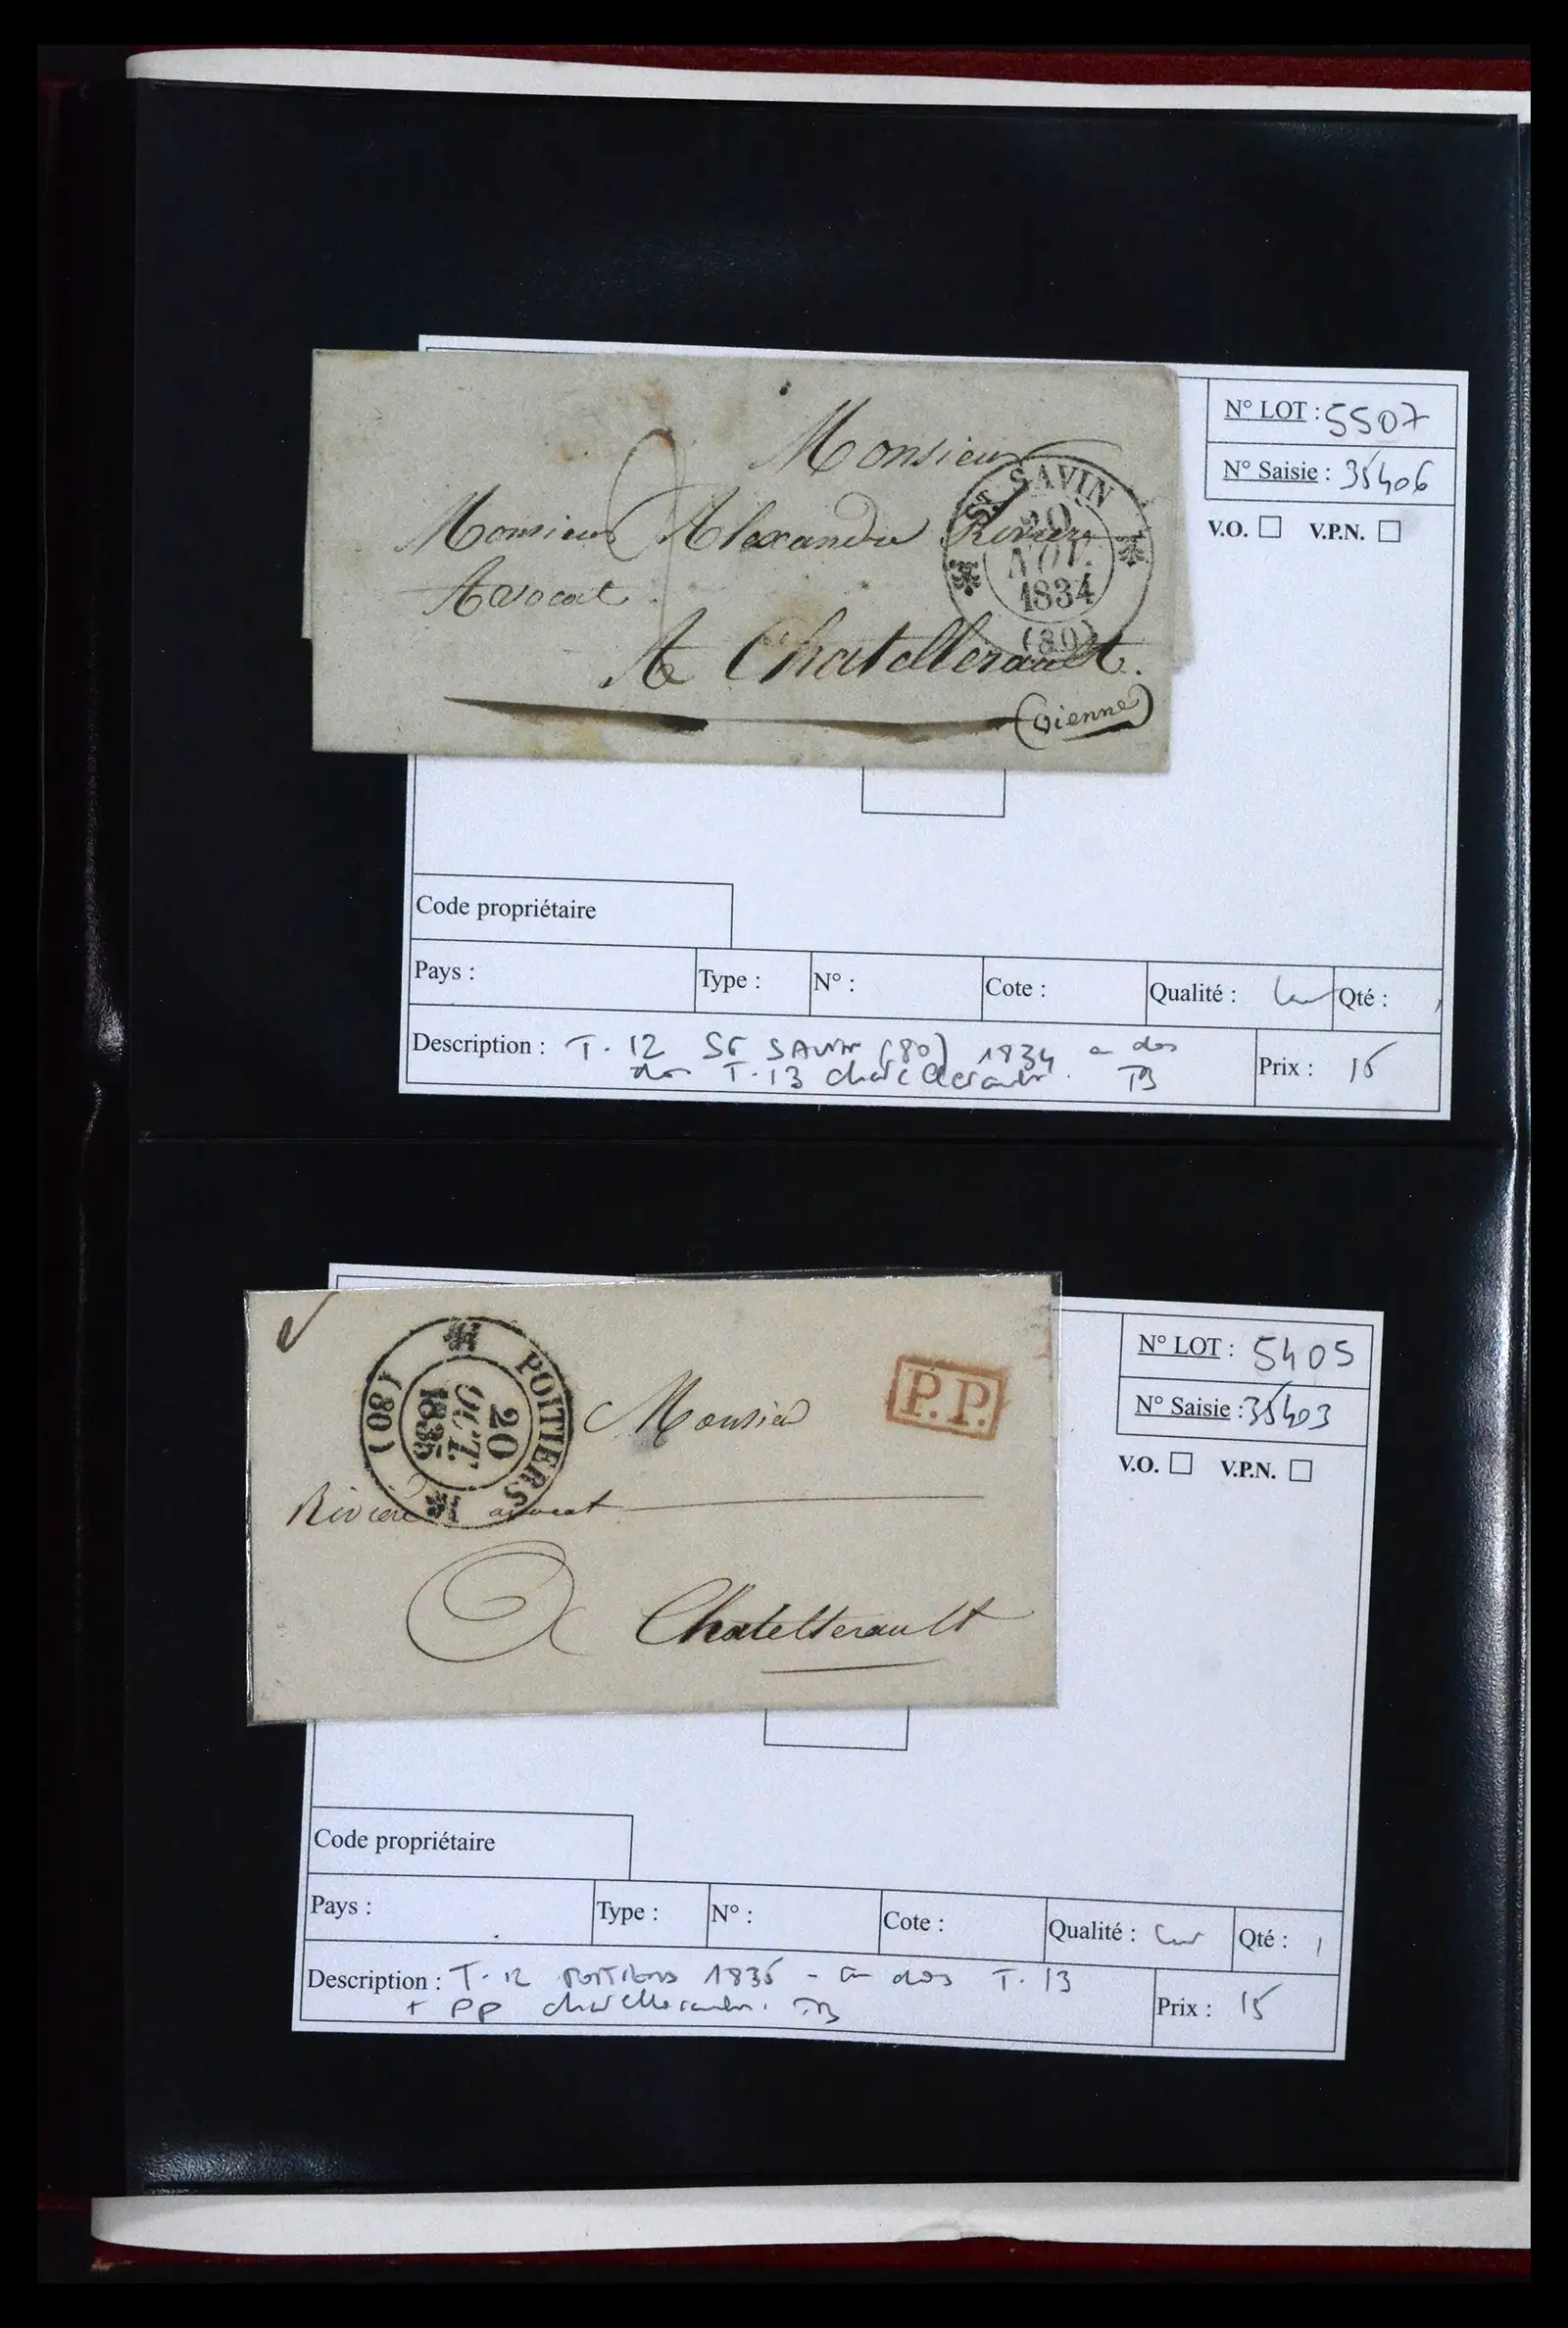 N° LOT : 5507
N° Saisie : 35406
V.O. V.P.N.
Monsieur
Monsieur Alexandre Rivière
Avocat
A Chatellerault.
(Vienne)
ST SAVIN
20
NOV.
1834
(80)
Code propriétaire
Pays : Type : N° : Cote : Qualité : Qté :
Description : T. 12 ST SAVIN (80) 1834 - au dos
T. 13 Chatellerault. TB
Prix : 15
N° LOT : 5405
N° Saisie : 35403
V.O. V.P.N.
POITIERS
20
OCT.
1835
(80)
P.P.
Monsieur
Rivière avocat
A Chatellerault
Code propriétaire
Pays : Type : N° : Cote : Qualité : Qté : 1
Description : T. 12 POITIERS 1835 - au dos T. 13
+ PP chatellerault. TB
Prix : 15